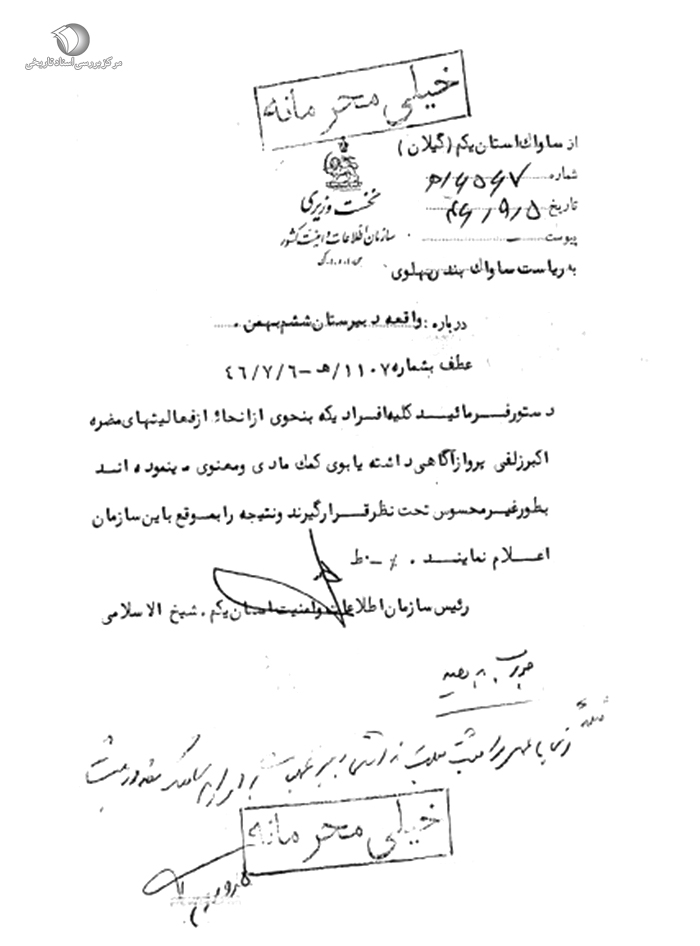 مرکز بررسی اسناد تاریخی
خیلی محرمانه
از ساواك استان یکم (گیلان)
شماره
تاریخ ۴۶٫۹٫۵
پیوست
نخست وزیری
سازمان اطلاعات و امنیت کشور
س.ا.و.ا.ک
به ریاست ساواك بندرپهلوی
درباره : واقعه دبیرستان ششم بهمن .
عطف بشماره ۱۱۰۷/هـ -۴۶/۷/۶
دستورفرمائید کلیه افرادیکه بنحوی ازانحاء ازفعالیتهای مضره
اکبرزلفی پروازآگاهی داشته یابوی کمك مادی ومعنوی مینموده اند
بطورغیرمحسوس تحت نظرقرارگیرند ونتیجه رابموقع باین سازمان
اعلام نمایند . /-ط
رئیس سازمان اطلاعات وامنیت استان یکم . شیخ الاسلامی
خیلی محرمانه